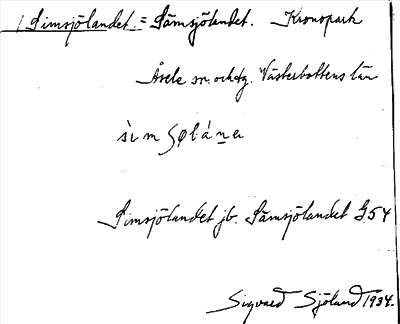 Simsjölandet. = Sämsjölandet. Kronopark
Åsele sn. och tg. Västerbottens län
sìmʃølánɐ
Simsjölandet jb. Sämsjölandet G54
Sigvard Sjölund 1934.